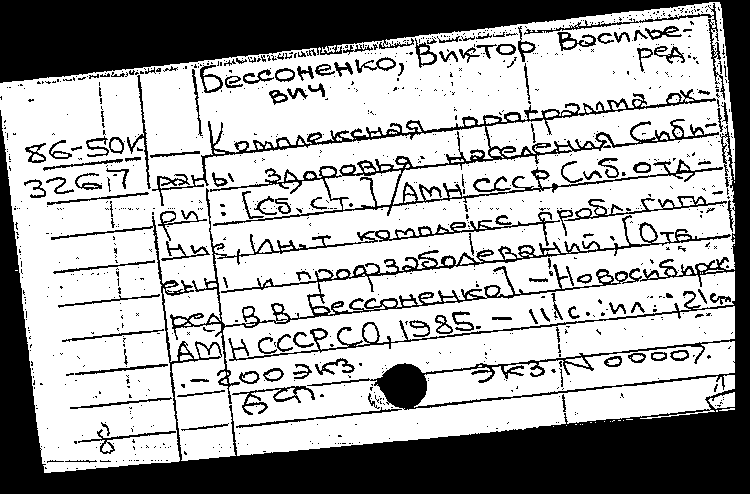 Бессоненко, Виктор Василье-
вич ред.
86-50к
3267
Комплексная программа ох-
раны здоровья населения Сиби-
ри : [Сб. ст.] / АМН СССР, Сиб. отд-
ние, Ин-т комплекс. пробл. гиги-
ены и профзаболеваний ; [Отв.
ред. В.В. Бессоненко]. - Новосибирск
АМН СССР. СО, 1985. - 111 с. : ил. ; 21 см.
. - 200 экз.
Экз. N 00007.
ДСП.
8